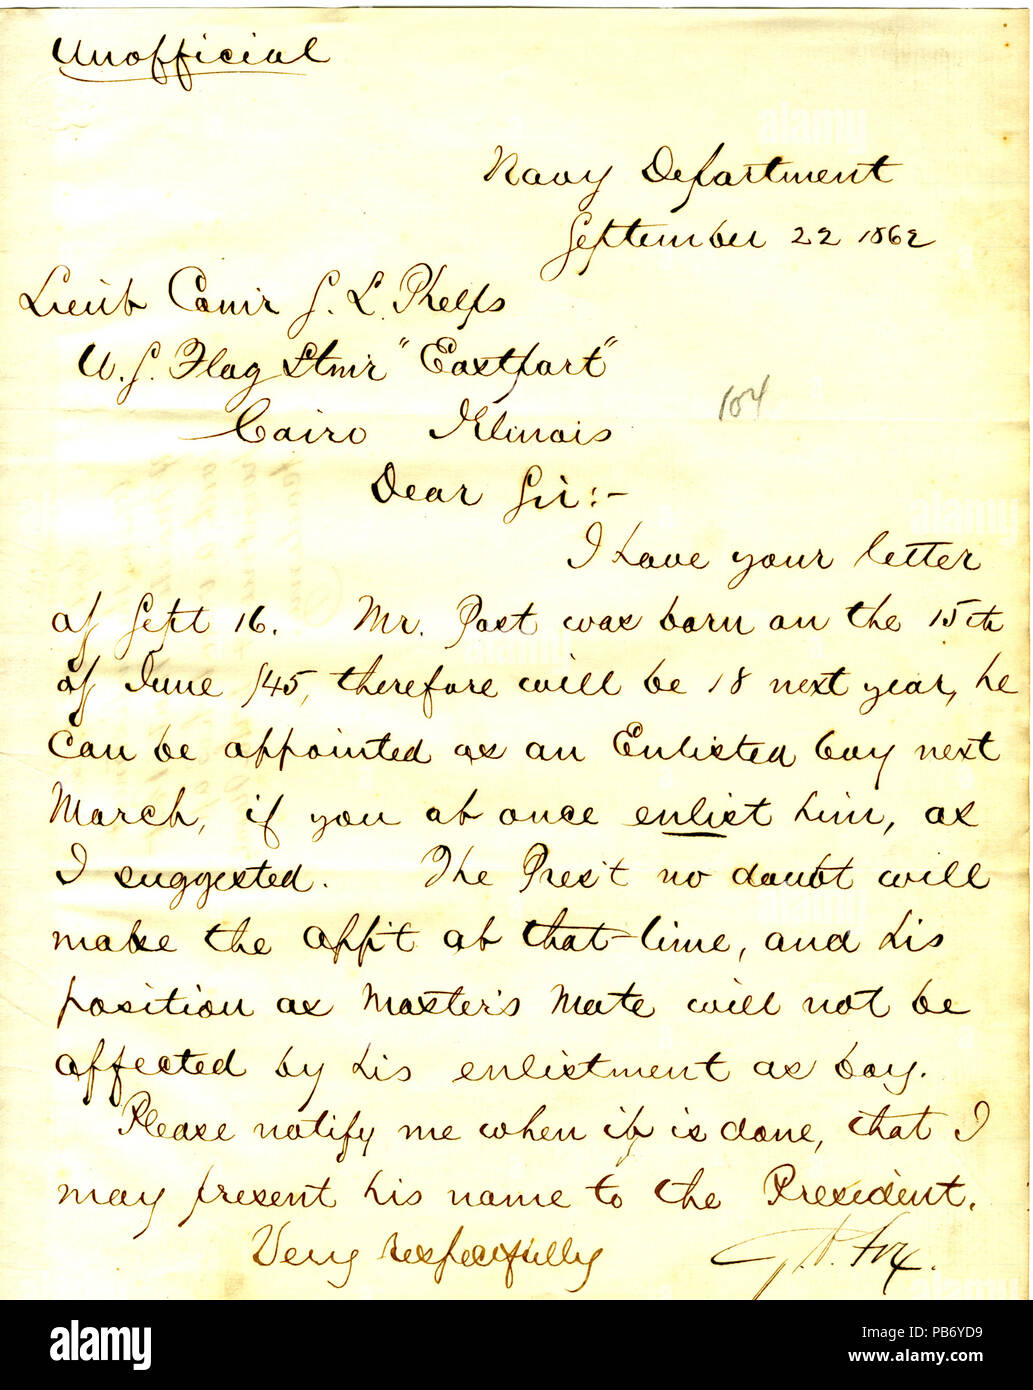 Unofficial
Navy Department
September 22 1862
Lieut Com'r S. L. Phelps
U.S. Flag Stmr "Eastport"
Cairo Illinois
104
Dear Sir:-
I have your letter
of Sept 16. Mr. Post was born on the 15th
of June /45, therefore will be 18 next year, he
can be appointed as an Enlisted boy next
March, if you at once enlist him, as
I suggested. The Pres't no doubt will
make the app't at that time, and his
position as Master's Mate will not be
affected by his enlistment as boy.
Please notify me when it is done, that I
may present his name to the President.
Very respectfully G. V. Fox.
alamy
Image ID: PB6YD9
www.alamy.com